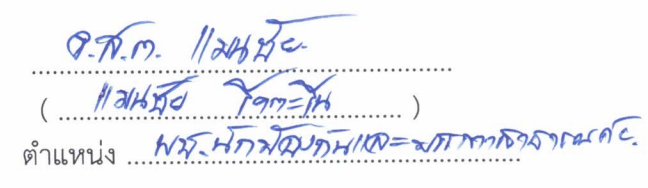 จ.ส.ต. แมนชัย
( แมนชัย )
ตำแหน่ง ผช.นักป้องกันและบรรเทาสาธารณภัย.